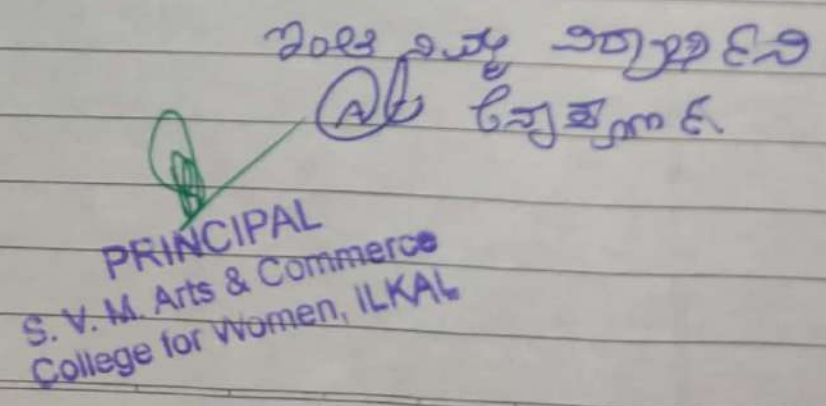 ಇಂತಿ ನಿಮ್ಮ ವಿದ್ಯಾರ್ಥಿನಿ
PRINCIPAL
S. V. M. Arts & Commerce
College for Women, ILKAL